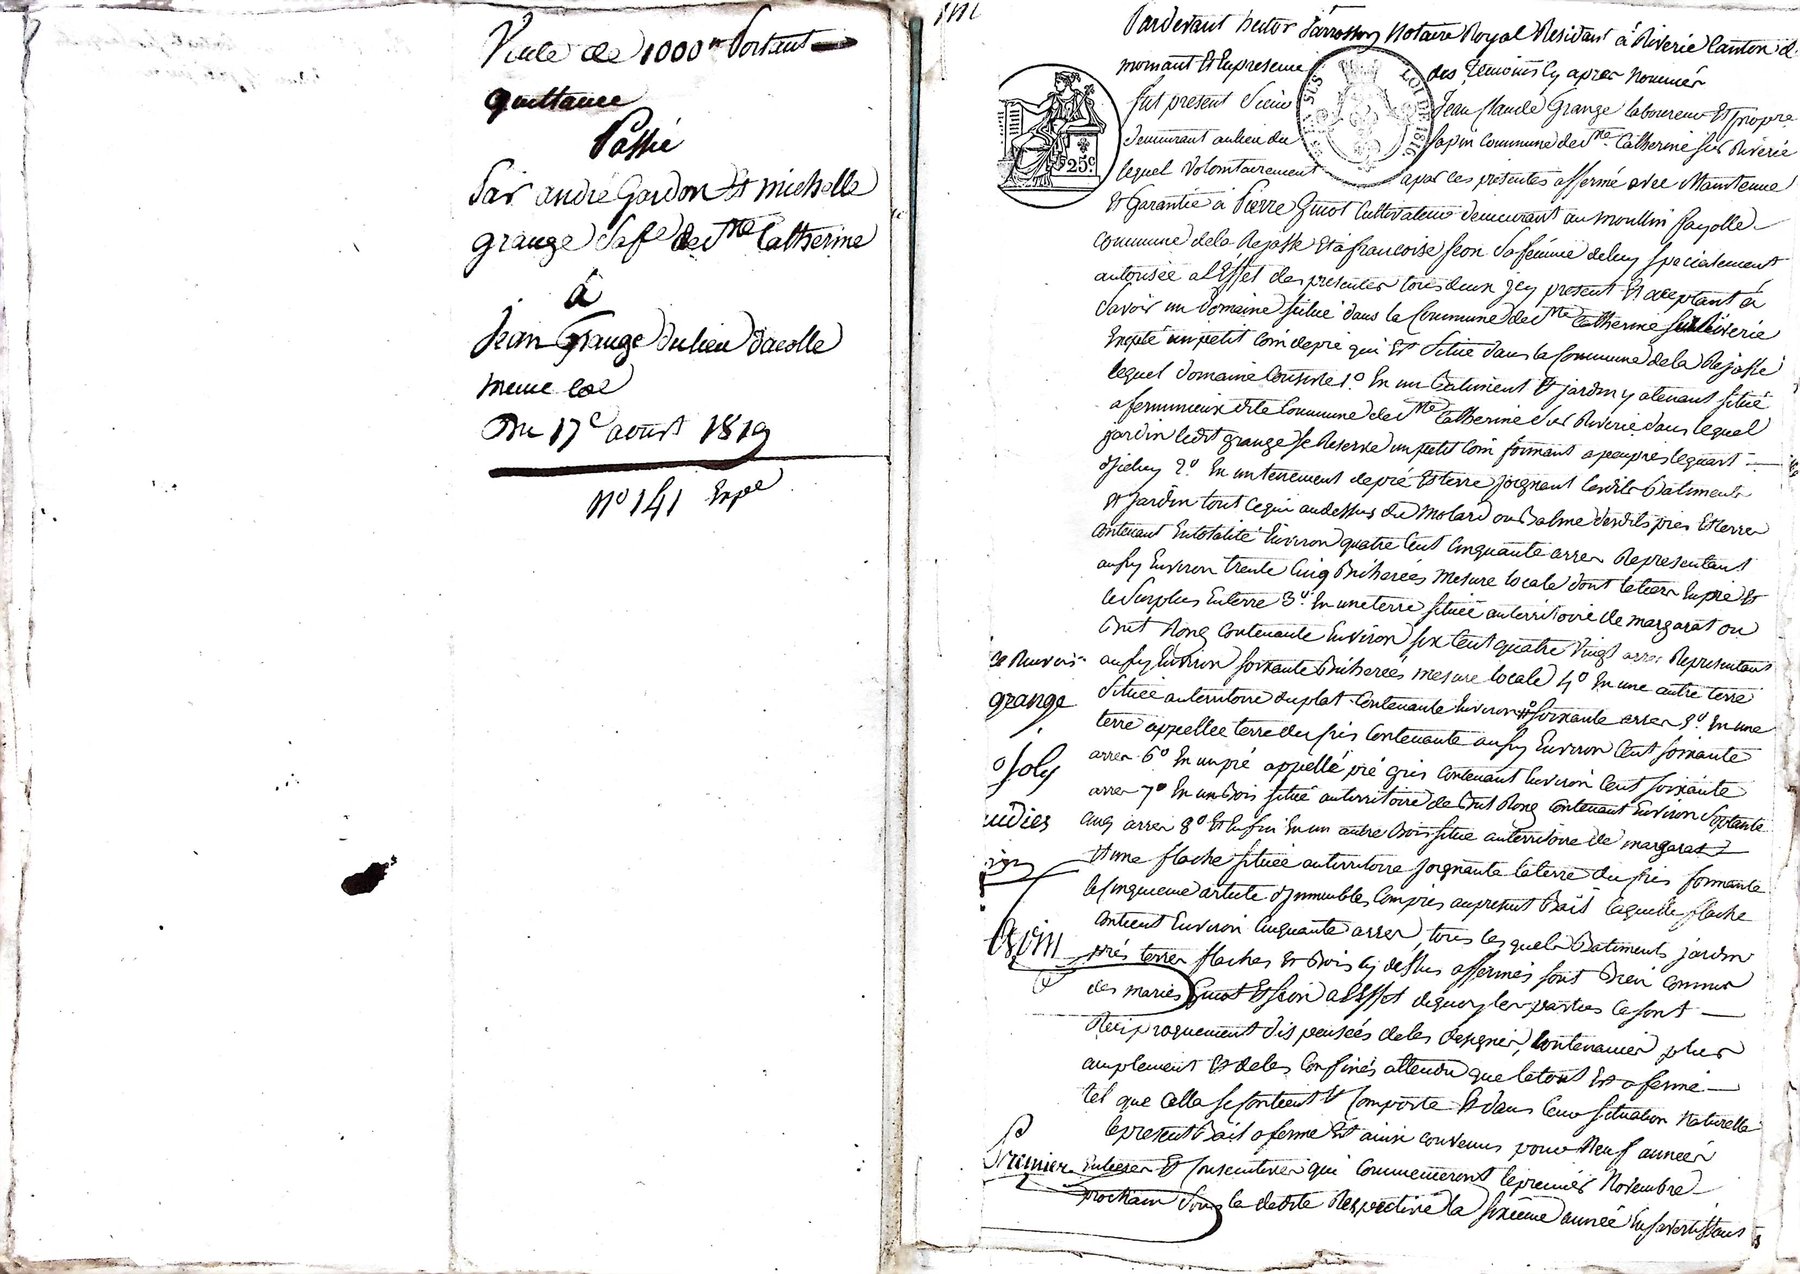 Vente de 1000 ₶ Portant
quittance
Passée
Par andré Gardon Et michelle
grange Safe de Ste Catherine
à
Jean Grange du lieu dacolle
meme
Du 17e aoust 1819
No 141 Expe
Pardevant hector Notaire Royal Residant à Riverie Canton de
mornant Et En presence des temoins Cy aprés nommés
fut present Sieur Jean Claude Grange laboureur Et propre
demeurant au lieu du sapin Commune de Ste Catherine sur Riverie
lequel volontairement a par ces presentes affermé avec Maintenue
Et Garantie à Pierre Guiot Cultivateur demeurant au moullin fayolle
Commune de la Rajasse Et à francoise feon Sa femme de luy specialement
autorisée a l'Effet des presentes tous deux jcy present Et aceptant a
Savoir un Domaine situé dans la Commune de Ste Catherine sur Riverie
Excepté un petit Coin de pré qui Est Situé dans la Commune de la Rajasse
lequel domaine Consiste 1o En un Batiment Et jardin y atenant situé
a fenimieux dite Commune de Ste Catherine sur Riverie dans lequel
jardin ledit grange se Reserve un petit Coin formant a peu pres le quart
d'jceluy 2o En un tenement de pré Et terre joignant lesdits Batiments
Et jardin tout Ce qui au dessus du Molard ou Balme desdits prés Et terres
contenant En totalité Environ quatre Cent Cinquante arres Representant
aussy Environ trente Cinq Bicherées mesure locale dont le tiers En pré Et
le Surplus En terre 3o En une terre située au territoire de margarat ou
But Rong Contenante Environ six Cent quatre Vingt arres Representant
aussy Environ soixante Bicherées mesure locale 4o En une autre terre
Située au territoire du plat Contenante Environ soixante arres 5o En une
terre appellée terre du fres Contenante aussy Environ Cent soixante
arres 6o En un pré appellé pré gris Contenant Environ Cent soixante
arres 7o En un Bois situé au territoire de But Rong Contenant Environ Soixante
Cinq arres 8o Et Enfin En un autre Bois situé au territoire de margarat
Et une flache située au territoire joignante la terre du fres formante
le Cinquieme article d'jmmeubles Compris au present Bail laquelle flache
Contient Environ Cinquante arres, tous lesquels Batiments jardin
prés terres flaches Et Bois Cy dessus affermés sont Bien Connus
des mariés Guiot Et feon a l'Effet de quoy les parties Se sont
Reciproquement dispensées de les designer, Contenancer plus
amplement Et de les Confiner attendu que le tout Est affermé
tel que Cella se Contient Et Comporte Et dans leur situation Naturelle
le present Bail a ferme Est ainsi convenus pour Neuf années
Entieres Et Consecutives qui Commenceront le premier Novembre
prochain sous la dedite Respective la sixieme année En S'avertissant
grange
joly
Premier
TIMBRE
25c.
LOI DE 1816